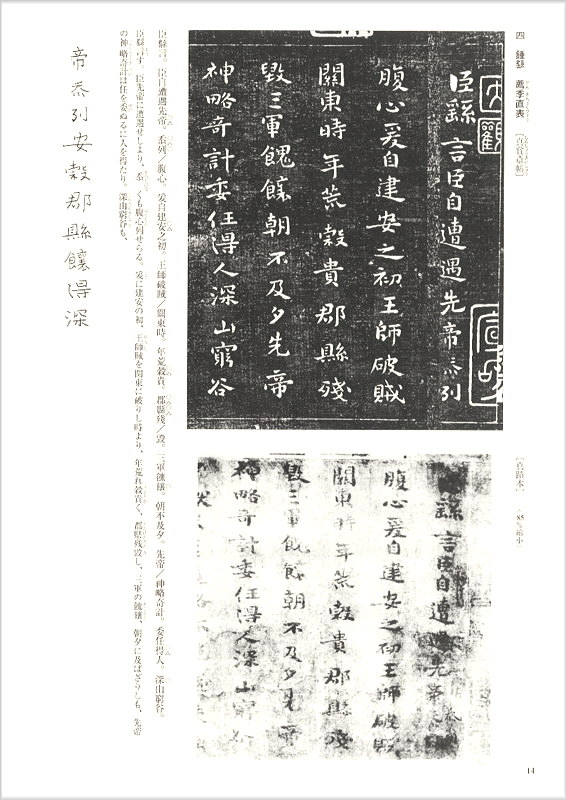 四 鍾繇 薦季直表 〔真賞斎帖〕
臣繇言臣自遭遇先帝忝列
腹心爰自建安之初王師破賊
關東時年荒穀貴郡縣殘
毀三軍餽饟朝不及夕先帝
神略奇計委任得人深山窮谷
〔真蹟本〕 85%縮小
繇言臣自遭遇先帝忝列
腹心爰自建安之初王師破賊
關東時年荒穀貴郡縣殘
毀三軍餽饟朝不及夕先帝
神略奇計委任得人深山窮谷
臣繇言。臣自遭遇先帝。忝列／腹心。爰自建安之初。王師破賊／關東時。年荒穀貴。郡縣殘／毀。三軍餽饟。朝不及夕。先帝／神略奇計。委任得人。深山窮谷。
臣繇言す。臣先帝に遭遇せしより、忝くも腹心列せらる。爰に建安の初、王師賊を關東に破りし時より、年荒れ穀貴く、郡縣残毀し、三軍の餽饟、朝夕に及ばざりしも、先帝
の神略奇計は任を委ぬるに人を得たり。深山窮谷も、
帝忝列安穀郡縣饟得深
14